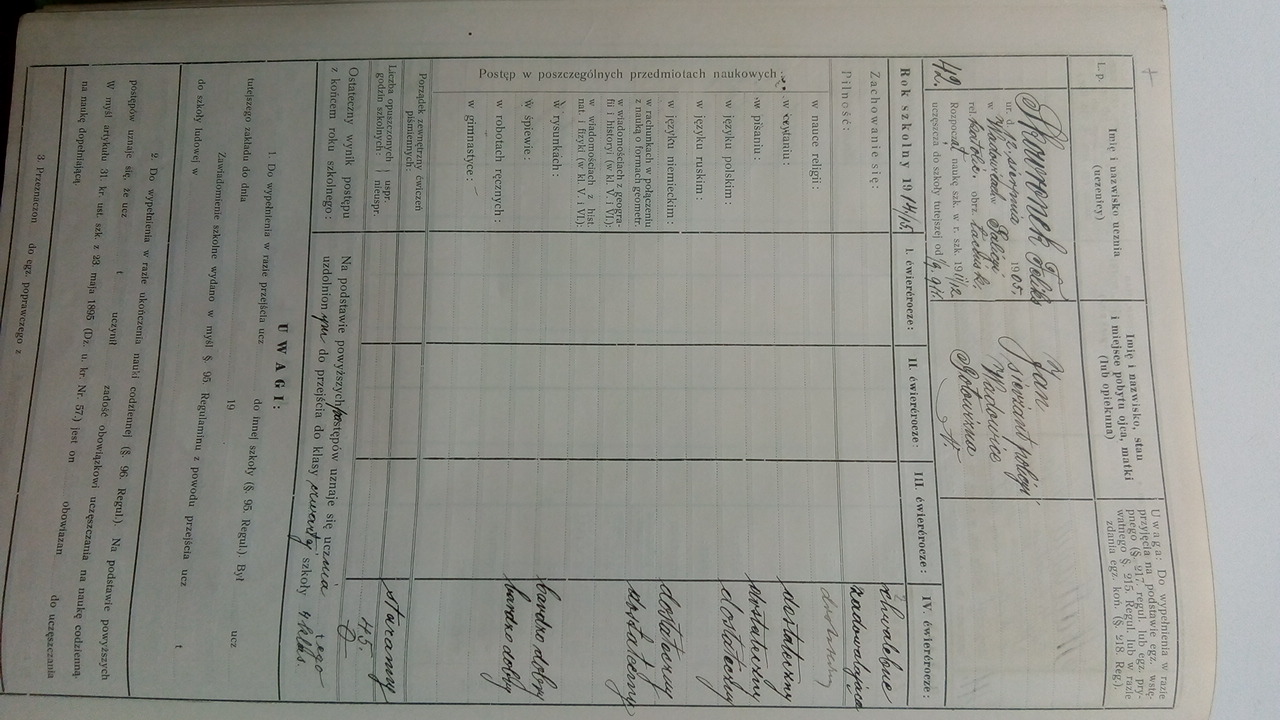 L. p.
Imię i nazwisko ucznia
(uczenicy)
Imię i nazwisko, stan
i miejsce pobytu ojca, matki
(lub opiekuna)
Uwaga: Do wypełnienia w razie
przyjęcia na podstawie egz. wstę-
pnego (§. 217. regul. lub egz. pry-
watnego §. 215. Regul. lub w razie
zdania egz. koń. (§. 218. Reg.).
42.
Skowronek Feliks
ur. d. sierpnia 1905.
w Wadowicach Galicya
rel. obrz. łacińsk.
Rozpoczął naukę szk. w r. szk. 1911/12
uczęszcza do szkoły tutejszej od 1/9 911.
Jan
sierżant policyi
Wadowice
Rok szkolny 1914/15
I. ćwierćrocze:
II. ćwierćrocze:
III. ćwierćrocze:
IV. ćwierćrocze:
Zachowanie się: chwalebne
Pilność: zadowalająca
Postęp w poszczególnych przedmiotach naukowych:
w nauce religii:
w czytaniu: dostateczny
w pisaniu: dostateczny
w języku polskim: dostateczny
w języku ruskim:
w języku niemieckim: dostateczny
w rachunkach w połączeniu
z nauką o formach geometr. dostateczny
w wiadomościach z geogra-
fii i history (w kl. V. i VI.):
w wiadomościach z hist.
nat. i fizyki (w kl. V. i VI.):
w rysunkach:
w śpiewie: bardzo dobry
w robotach ręcznych: bardzo dobry
w gimnastyce:
Porządek zewnętrzny ćwiczeń
piśmiennych: staranny
Liczba opuszczonych godzin szkolnych:
uspr. 45.
nieuspr. 0
Ostateczny wynik postępu
z końcem roku szkolnego:
Na podstawie powyższych postępów uznaje się ucznia tego
uzdolnionym do przejścia do klasy czwartej szkoły 4 klas.
UWAGI:
1. Do wypełnienia w razie przejścia ucz do innej szkoły (§. 95. Regul.). Był ucz
tutejszego zakładu do dnia 19
Zawiadomienie szkolne wydano w myśl §. 95. Regulaminu z powodu przejścia ucz t
do szkoły ludowej w
2. Do wypełnienia w razie ukończenia nauki codziennej (§. 96. Regul.). Na podstawie powyższych
postępów uznaje się, że ucz t uczynił zadość obowiązkowi uczęszczania na naukę codzienną.
W myśl artykułu 31. kr. ust. szk. z 23 maja 1895 (Dz. u. kr. Nr. 57.) jest on obowiązan do uczęszczania
na naukę dopełniającą.
3. Przeznaczon do egz. poprawczego z